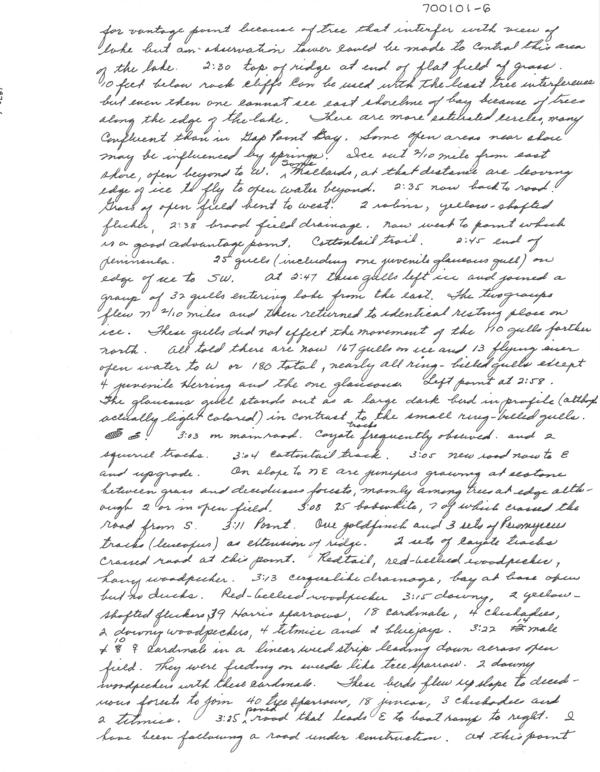 700101-6
for vantage point because of tree that interfer with view of
lake but an observation tower could be made to control this area
of the lake. 2:30 top of ridge at end of flat field of grass.
10 feet below rock cliffs can be used with the least tree interference
but even then one cannot see east shoreline of bay because of trees
along the edge of the lake. There are more saturated circles, many
confluent than in Gap Point Bay. Some open areas near shore
may be influenced by springs. Ice out 2/10 mile from east
shore, open beyond to W. Some Mallards, at that distance are leaving
edge of ice to fly to open water beyond. 2:35 now back to road.
Grass of open field bent to west. 2 robins, yellow-shafted
flicker, 2:38 broad field drainage. now west to point which
is a good advantage point. Cottontail trail. 2:45 end of
peninsula. 25 gulls (including one juvenile glaucous gull) on
edge of ice to SW. At 2:47 these gulls left ice and joined a
group of 32 gulls entering lake from the east. The two groups
flew N 2/10 miles and then returned to identical resting place on
ice. These gulls did not effect the movement of the 110 gulls farther
north. All told there are now 167 gulls on ice and 13 flying over
open water to W or 180 total, nearly all ring-billed gulls except
4 juvenile Herring and the one glaucous. Left point at 2:58.
The glaucous gull stands out as a large dark bird in profile (although
actually light colored) in contrast to the small ring-billed gulls.
3:03 on main road. Coyote tracks frequently observed. and 2
squirrel tracks. 3:04 cottontail track. 3:05 new road now to E
and upgrade. On slope to NE are junipers growing at ecotone
between grass and deciduous forests, mainly among trees at edge alth-
ough 2 or in open field. 3:08 25 bobwhite, 7 of which crossed the
road from S. 3:11 Point. One goldfinch and 3 sets of Peromyscus
tracks (leucopus) as extension of ridge. 2 sets of coyote tracks
crossed road at this point. Redtail, red-bellied woodpecker,
hairy woodpecker. 3:13 cirquelike drainage, bay at base open
but no ducks. Red-bellied woodpecker 3:15 downy, 2 yellow-
shafted flickers, 39 Harris sparrows, 18 cardinals, 4 chickadees,
2 downy woodpeckers, 4 titmice and 2 bluejays. 3:22 14 male
+ 10 ♀ cardinals in a linear weed strip leading down across open
field. They were feeding on weeds like tree sparrow. 2 downy
woodpeckers with these cardinals. These birds flew up slope to decid-
uous forests to join 40 tree sparrows, 18 juncos, 3 chickadees and
2 titmice. 3:25 paved road that leads E to boat ramp to right. I
have been following a road under construction. At this point